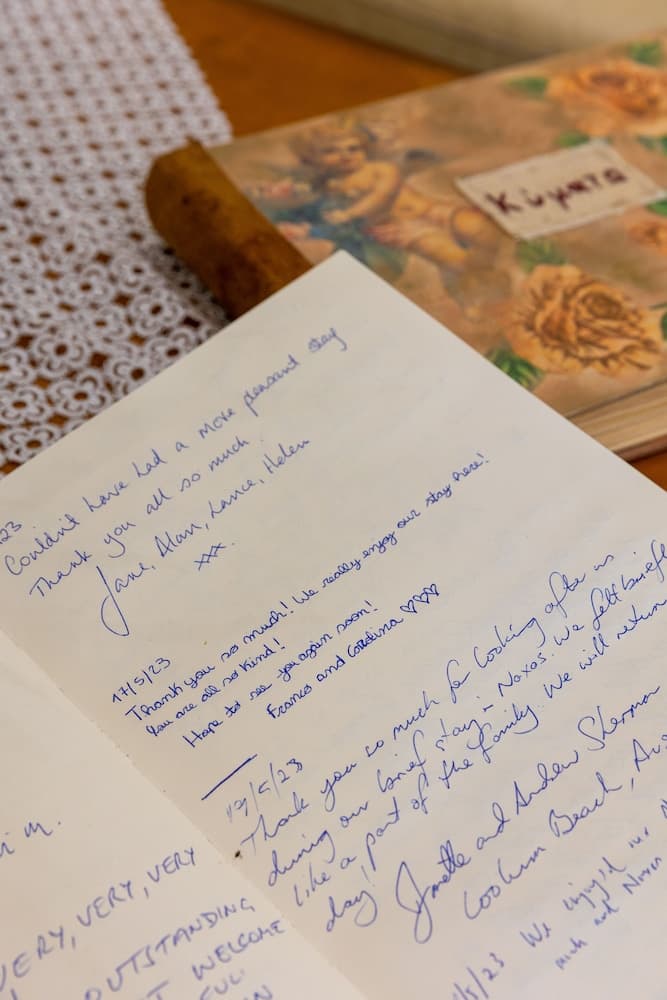 Κύματα
23
Couldn't have had a more pleasant stay
Thank you all so much!
Jane, Alan, Lance, Helen
xxx.
17/5/23
Thank you so much! We really enjoy our stay here!
You are all so kind!
Hope to see you again soon!
Franco and Carolina ♡♡♡
19/5/23
Thank you so much for looking after us
during our brief stay in Naxos. We felt
like a part of the family. We will return
day!
and Andrew Sherman
Coolum Beach,
/5/23 We enjoy'd our
much and Naxos
m.
VERY, VERY, VERY
OUTSTANDING
WELCOME